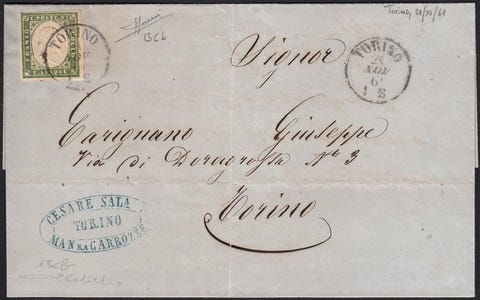 Torino, 21/XI/61
13Cb
C. POSTE
FRANCO
TORINO
TORINO
21
NOV
61
1 S
Signor
Carignano Giuseppe
Via di Doragrossa N° 3
Torino
CESARE SALA
TORINO
MANra CARROZZE
13Cb